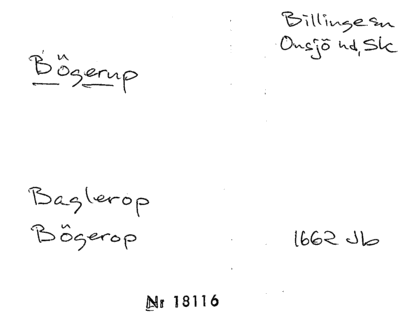 Billinge sn
Onsjö hd, Sk
Bögerup
Baglerop
Bögerop 1662 Jb
Nr 18116